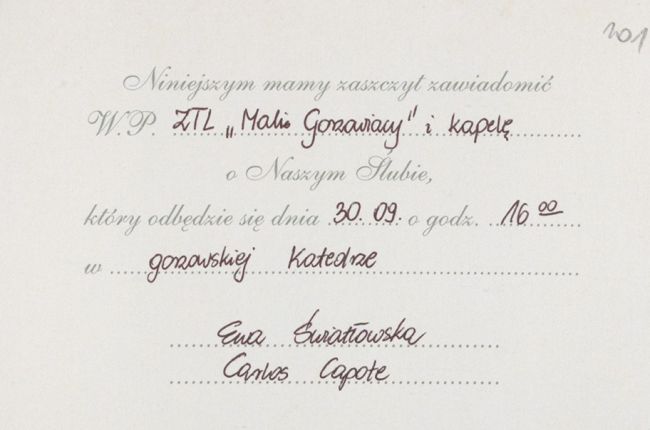 201
Niniejszym mamy zaszczyt zawiadomić
W.P. ZTL „Mali Gorzowiacy" i kapelę
o Naszym Ślubie,
który odbędzie się dnia 30. 09. o godz. 16 00
w gorzowskiej Katedrze
Ewa Światłowska
Carlos Capote